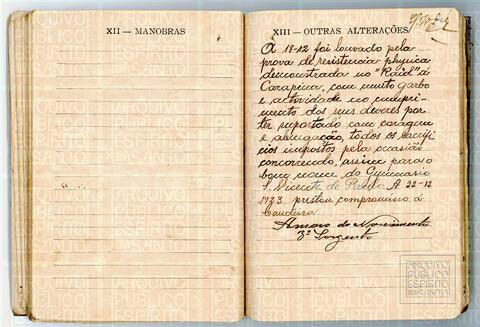 XII — MANOBRAS
XIII — OUTRAS ALTERAÇÕES
A 18-12 foi louvado pela
prova de resistencia physica
demonstrada no "Raid" á
Carapina, com muito garbo
e actividade no cumpri-
mento dos seus deveres por
ter suportado com coragem
e abnegação, todos os sacrifi
cios impostos pela occasião
concorrendo, assim para o
bom nome do Gymnasio
S. Vicente de Paula. A 22-12
1923 prestou compromisso á
bandeira.
Amaro do Nascimento
3º Sargento
ARQUIVO
PÚBLICO
ESPÍRITO
SANTO